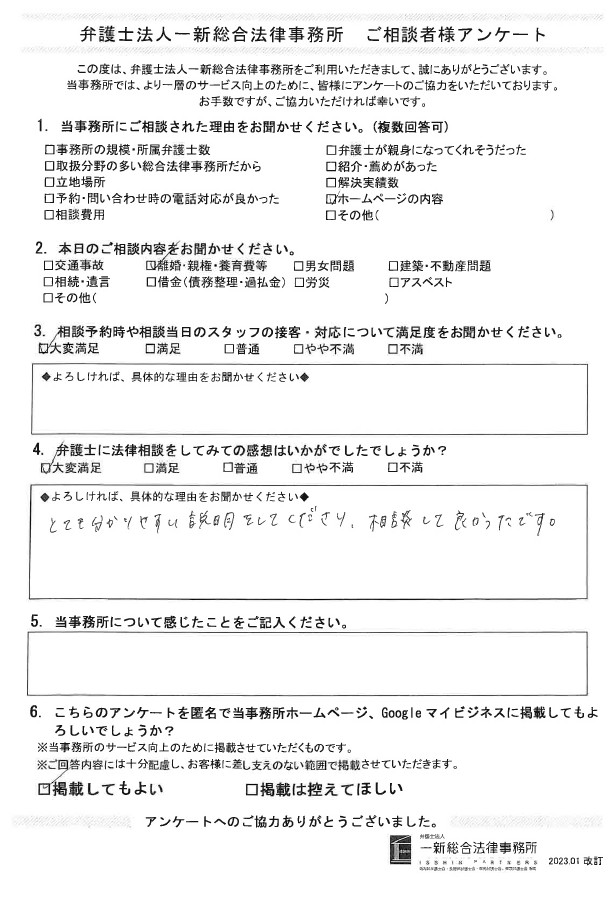 弁護士法人一新総合法律事務所　ご相談者様アンケート
この度は、弁護士法人一新総合法律事務所をご利用いただきまして、誠にありがとうございます。
当事務所では、より一層のサービス向上のために、皆様にアンケートのご協力をいただいております。
お手数ですが、ご協力いただければ幸いです。
1. 当事務所にご相談された理由をお聞かせください。(複数回答可)
□事務所の規模・所属弁護士数　□弁護士が親身になってくれそうだった
□取扱分野の多い総合法律事務所だから　□紹介・薦めがあった
□立地場所　□解決実績数
□予約・問い合わせ時の電話対応が良かった　☑ホームページの内容
□相談費用　□その他(　)
2. 本日のご相談内容をお聞かせください。
□交通事故　☑離婚・親権・養育費等　□男女問題　□建築・不動産問題
□相続・遺言　□借金(債務整理・過払金)　□労災　□アスベスト
□その他(　)
3. 相談予約時や相談当日のスタッフの接客・対応について満足度をお聞かせください。
☑大変満足　□満足　□普通　□やや不満　□不満
◆よろしければ、具体的な理由をお聞かせください◆
4. 弁護士に法律相談をしてみての感想はいかがでしたでしょうか？
☑大変満足　□満足　□普通　□やや不満　□不満
◆よろしければ、具体的な理由をお聞かせください◆
とても分かりやすい説明をしてくださり、相談して良かったです。
5. 当事務所について感じたことをご記入ください。
6. こちらのアンケートを匿名で当事務所ホームページ、Google マイビジネスに掲載してもよ
ろしいでしょうか？
※当事務所のサービス向上のために掲載させていただくものです。
※ご回答内容には十分配慮し、お客様に差し支えのない範囲で掲載させていただきます。
☑掲載してもよい　□掲載は控えてほしい
アンケートへのご協力ありがとうございました。
弁護士法人
一新総合法律事務所
ISSHIN PARTNERS
2023.01 改訂